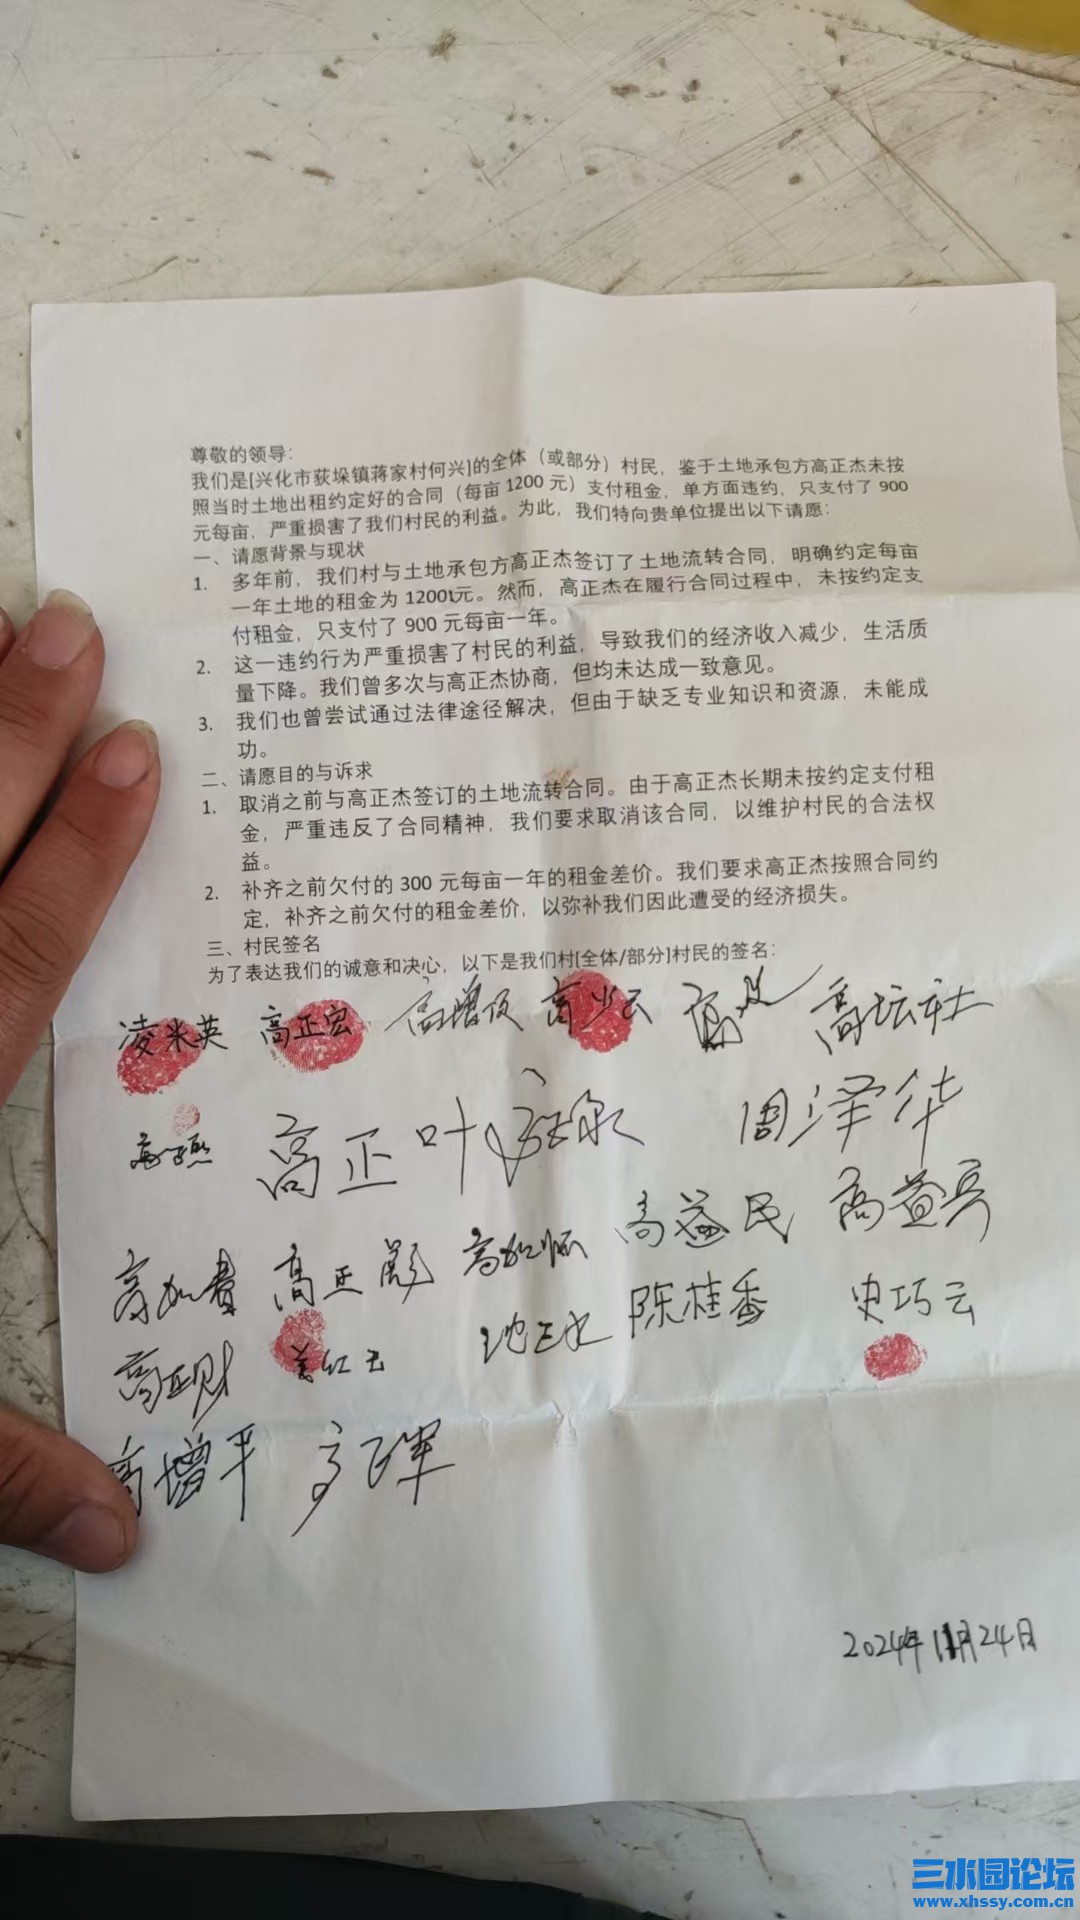 尊敬的领导：
我们是[兴化市荻垛镇蒋家村何兴]的全体（或部分）村民，鉴于土地承包方高正杰未按
照当时土地出租约定好的合同（每亩1200元）支付租金，单方面违约，只支付了900
元每亩，严重损害了我们村民的利益。为此，我们特向贵单位提出以下请愿：
一、请愿背景与现状
1. 多年前，我们村与土地承包方高正杰签订了土地流转合同，明确约定每亩
一年土地的租金为1200元。然而，高正杰在履行合同过程中，未按约定支
付租金，只支付了900元每亩一年。
2. 这一违约行为严重损害了村民的利益，导致我们的经济收入减少，生活质
量下降。我们曾多次与高正杰协商，但均未达成一致意见。
3. 我们也曾尝试通过法律途径解决，但由于缺乏专业知识和资源，未能成
功。
二、请愿目的与诉求
1. 取消之前与高正杰签订的土地流转合同。由于高正杰长期未按约定支付租
金，严重违反了合同精神，我们要求取消该合同，以维护村民的合法权
益。
2. 补齐之前欠付的300元每亩一年的租金差价。我们要求高正杰按照合同约
定，补齐之前欠付的租金差价，以弥补我们因此遭受的经济损失。
三、村民签名
为了表达我们的诚意和决心，以下是我们村[全体/部分]村民的签名：
凌米英 高正宏 高增 高少云 高 高坛社
高 高正叶 周泽华
高如贵 高正彪 高如怀 高益民 高益兵
高正财 姜红云 沈三 陈桂香 史巧云
高增平 高
2024年11月24日
三水园论坛
www.xhssy.com.cn